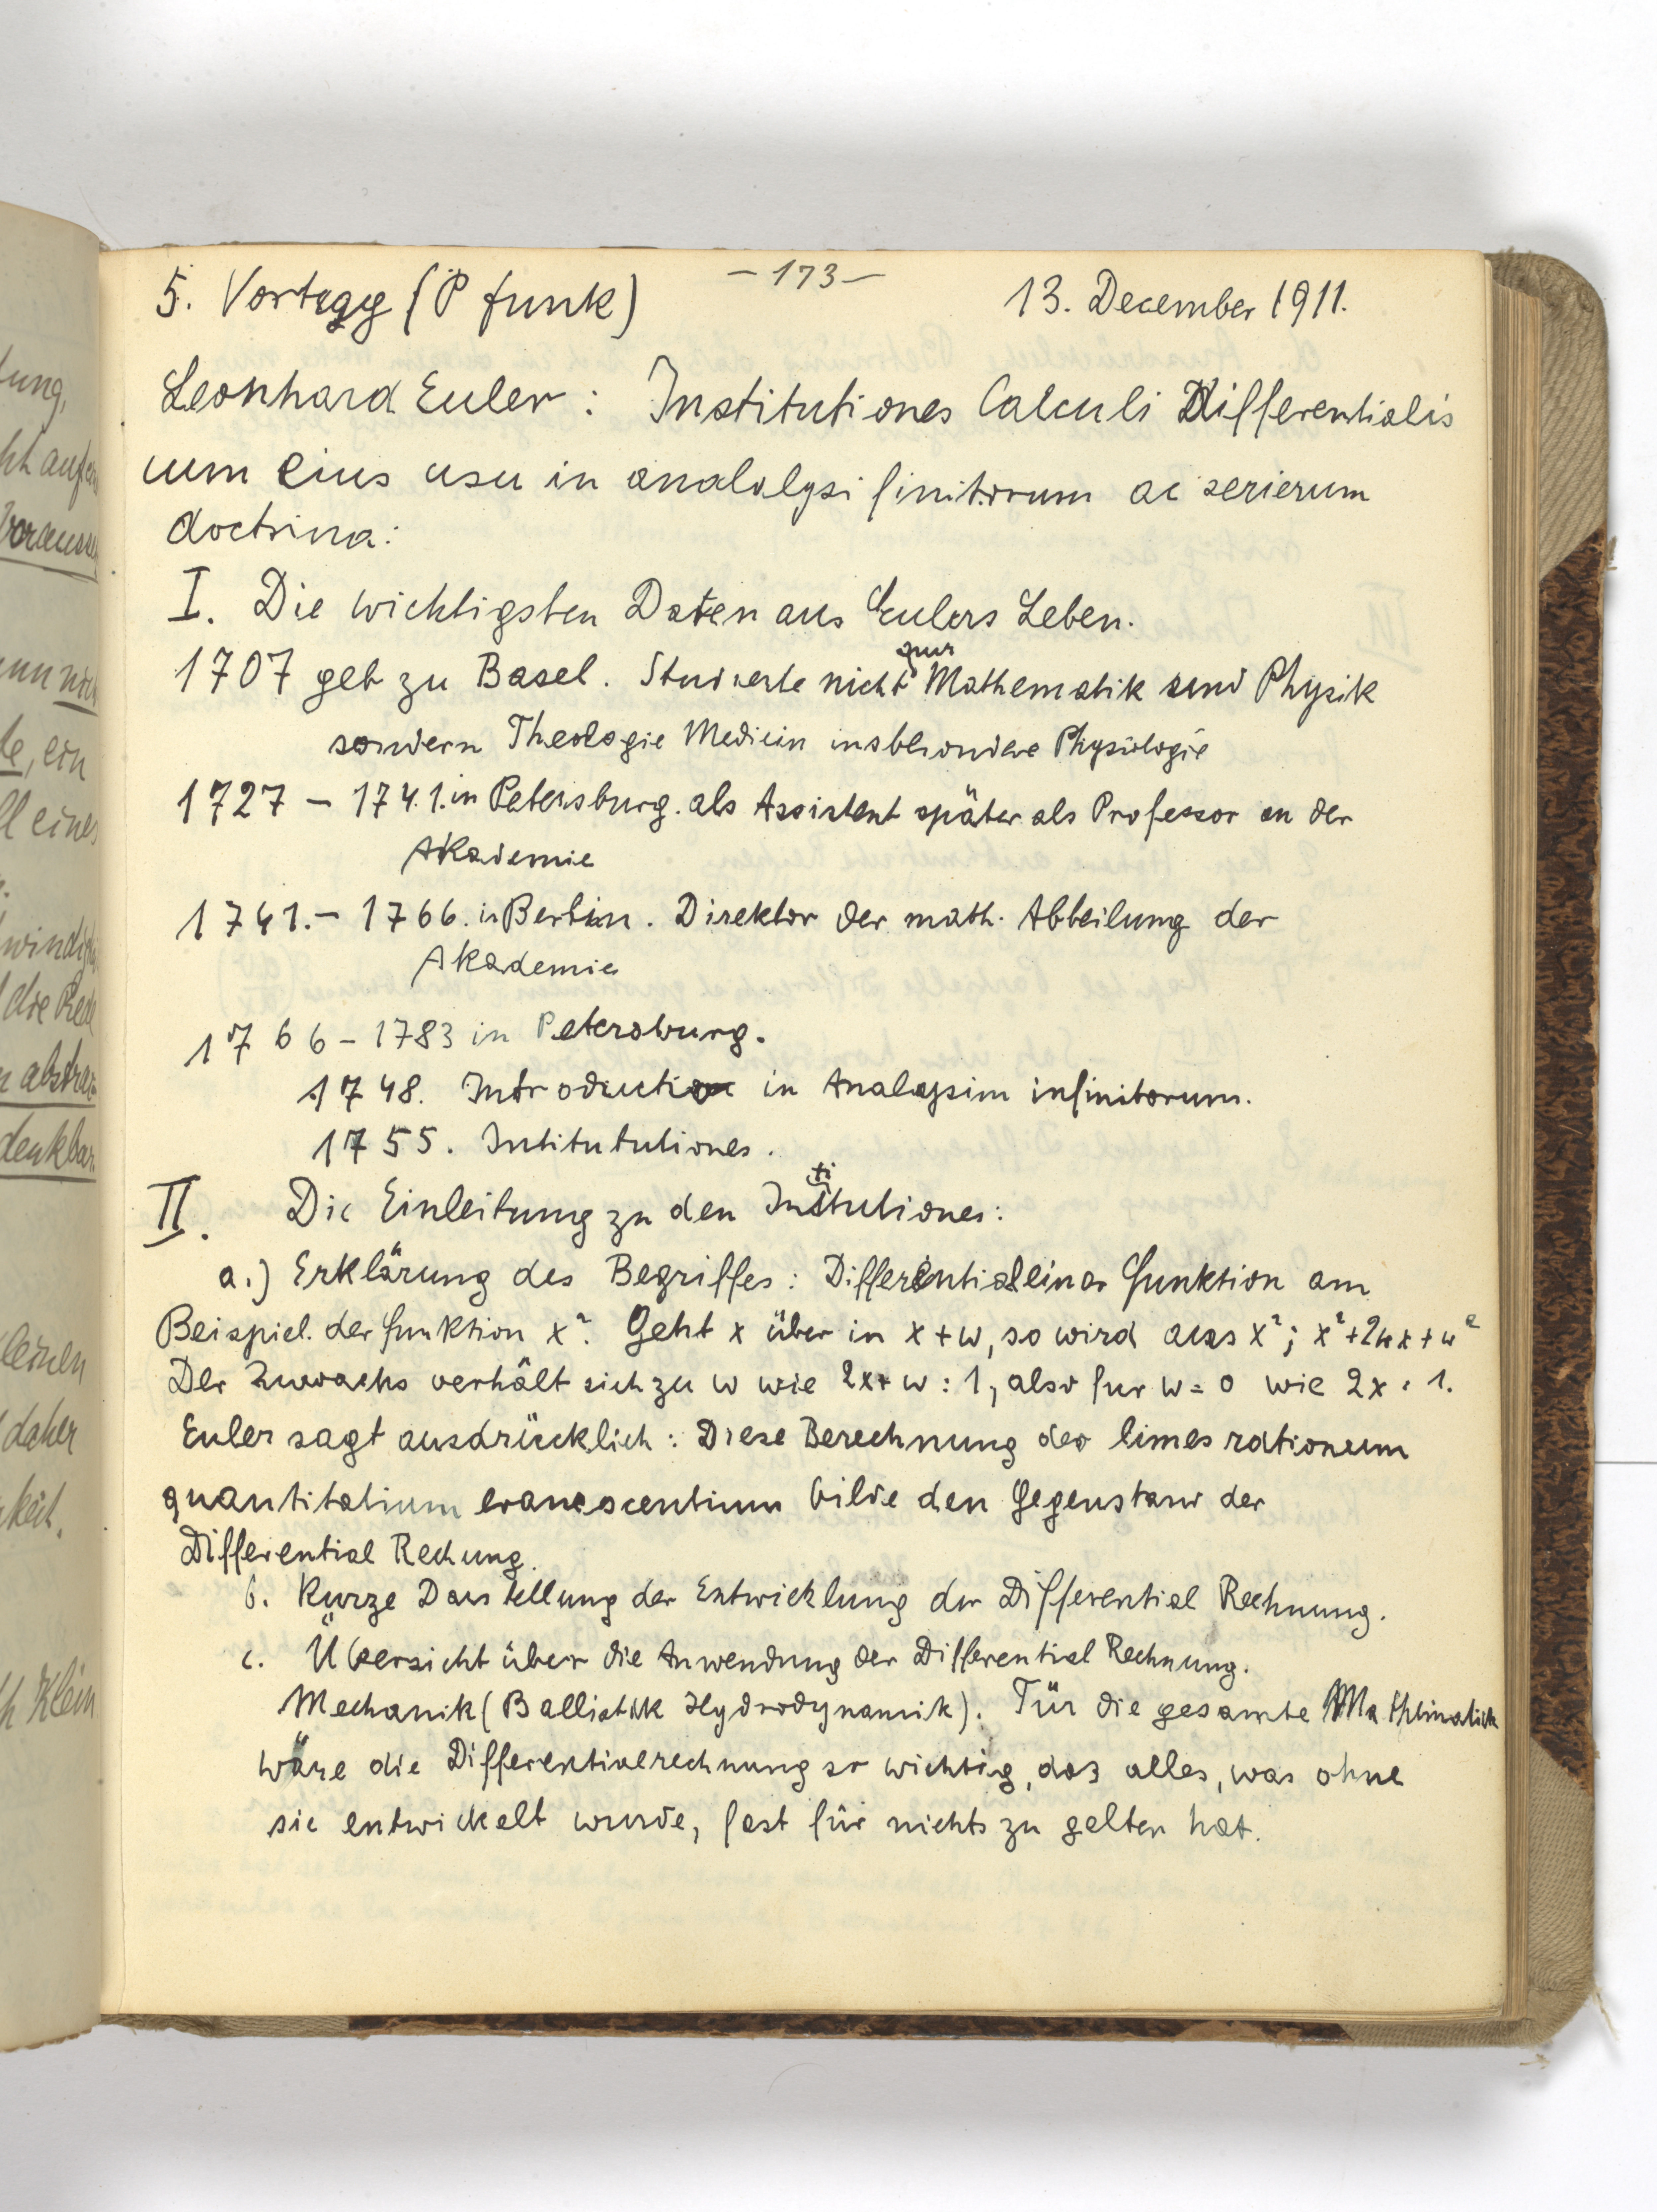 - 173 -
5. Vortragg (P funk) 13. December 1911.
Leonhard Euler: Institutiones Calculi Differentialis
cum eius usu in analalysi finitorum ac serierum
doctrina:
I. Die wichtigsten Daten aus Eulers Leben.
1707 geb zu Basel. Studierte nicht nur Mathematik und Physik
sondern Theologie Medicin insbesondere Physiologie
1727 - 1741. in Petersburg. als Assistent später als Professor an der
Akademie
1741. - 1766. in Berlin. Direktor der math. Abteilung der
Akademie
1766 - 1783 in Petersburg.
1748. Introductio in Analaysim infinitorum.
1755. Intitututiones.
II. Die Einleitung zu den Institutiones:
a.) Erklärung des Begriffes: Differential einer Funktion am
Beispiel. der funktion x². Geht x über in x + w, so wird aus x²; x² + 2wx + w²
Der Zuwachs verhält sich zu w wie 2x + w : 1, also fur w = 0 wie 2x : 1.
Euler sagt ausdrücklich: Diese Berechnung des limes rationum
quantitatium evanescentium bilde den Gegenstand der
Differential Rechung.
b. Kurze Darstellung der Entwicklung der Differential Rechnung.
c. Übersicht über die Anwendung der Differential Rechnung.
Mechanik (Ballistik Hydrodynamik). Für die gesamte Mathematik
wäre die Differentialrechnung so wichtig, das alles, was ohne
sie entwickelt wurde, fast für nichts zu gelten hat.